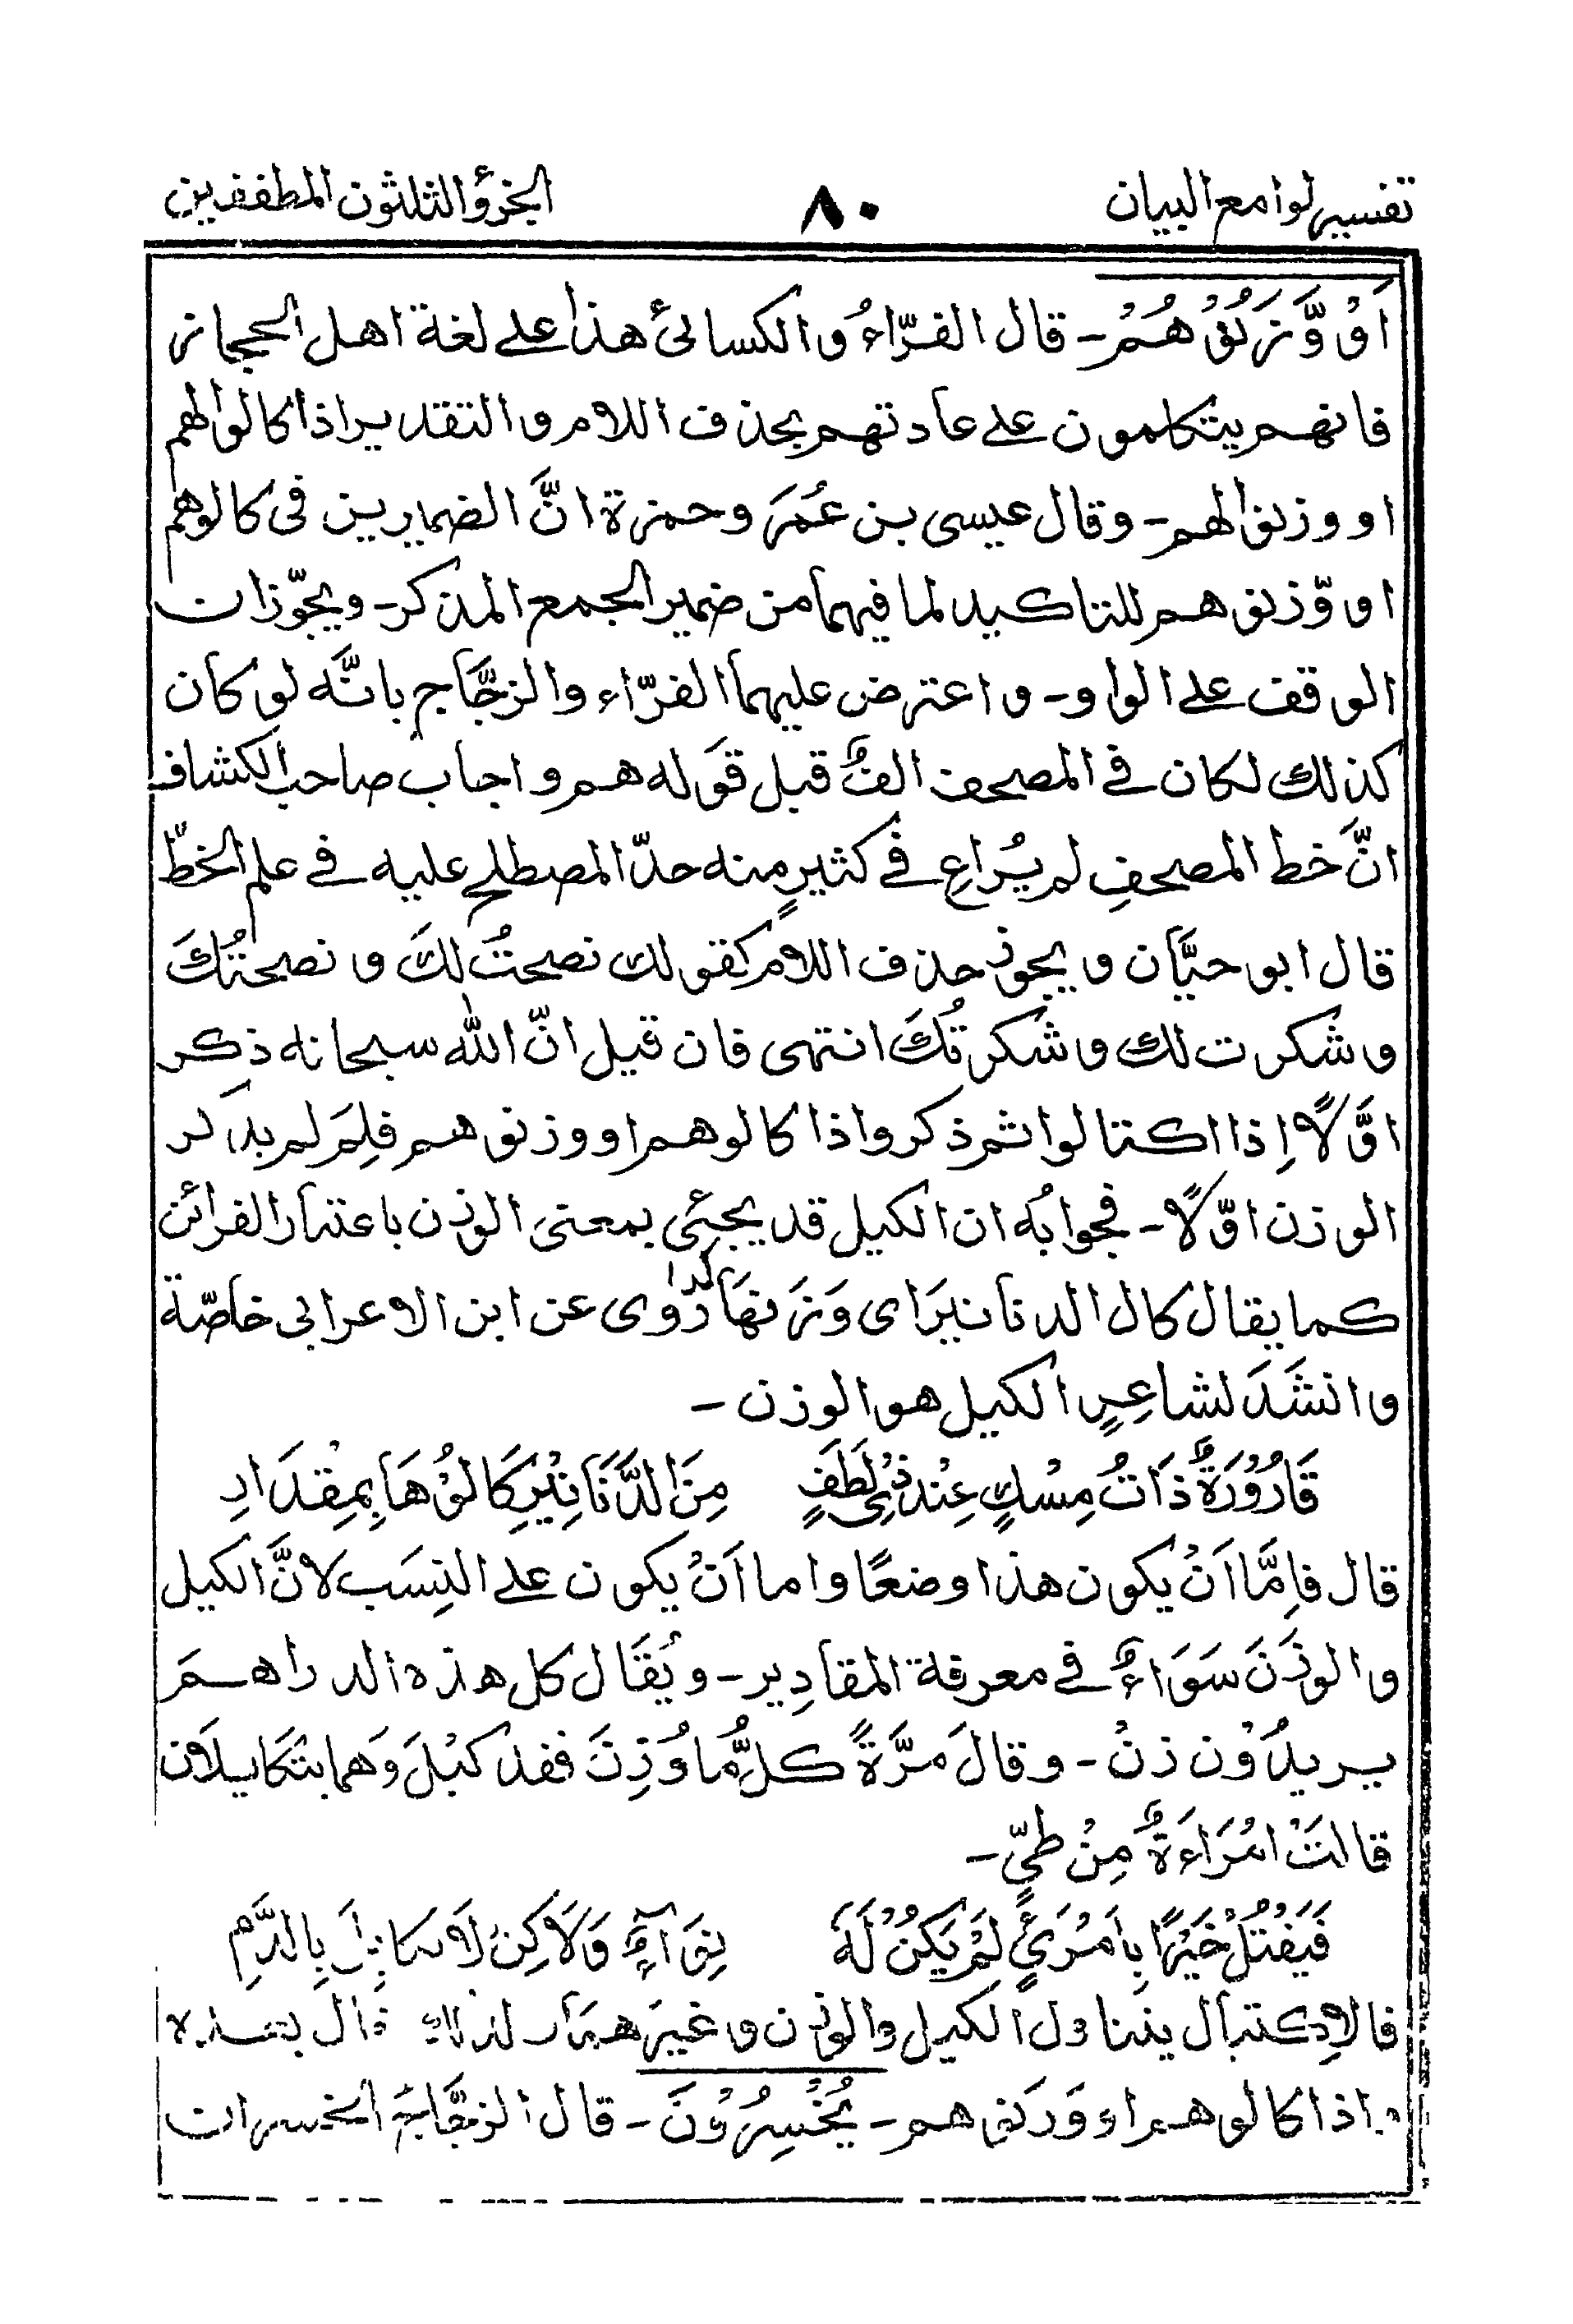 تفسير لوامع البيان
٨٠
الجزؤ الثلثون المطففين
اَوْ وَّزَنُوْ هُمْ - قال الفرّاءُ والكسائىُ هذا على لغة اهل الحجاز
فانهم يتكلمون على عادتهم بحذف اللام والتقدير اذا كالوا لهم
او وزنوا لهم - وقال عيسى بن عُمَرَ وحمزة انَّ الضميرين فى كالوهم
او وّزنوهم للتاكيد لما فيهما من ضمير الجمع المذكر - ويجوّزان
الوقف على الواو - واعترض عليهما الفرّاء والزجَّاج بانَّه لو كان
كذلك لكان فى المصحف الفٌ قبل قوَله هم واجاب صاحب الكشاف
انَّ خط المصحفِ لم يُراعِ فى كثيرٍ منه حدّ المصطلح عليه فى علم الخطّ
قال ابو حيَّان ويجوز حذف اللام كقولك نصحتُ لكَ ونصحتُكَ
وشكرت لك وشكرتُكَ انتهى فان قيل انّ الله سبحانه ذكر
اوَّلًا اِذا اكتالوا ثم ذكر واذا كالوهم او وزنوهم فلِمَ لم يذكر
الوزن اوّلًا - فجوابُه ان الكيل قد يجيئى بمعنى الوزن باعتبار القرائن
كما يقال كال الدنانيرَ اى وَزَنهَا كذا رُوى عن ابن الاعرابى خاصّة
وانشَدَ لشاعِرٍ الكيل هو الوزن -
قَارُوْرَةٌ ذَاتُ مِسْكٍ عِنْدَ ذِىْ لَطَفٍ مِنَ الدَّنَانِيْرِ كَالُوْهَا بِمِقْدَادِ
قال فاِمَّا اَنْ يكون هذا وضعًا واما اَنْ يكون على النِسَب لانَّ الكيل
والوزنَ سَوَاءٌ فى معرفة المقادِير - ويُقَال كل هذه الدراهمَ
يريدُوْن زنْ - وقالَ مرَّةً كلُّ مُا وُزِنَ فقد كيْلَ وَهما يتَكايلَان
قالتْ امْرَاءَةٌ مِنْ طىٍّ -
فَيَقْتُلْ خَيْرًا بِاَمْرَئٍ لَمْ يَكُنْ لَهُ نِوَآءٍ وَلَاكِنْ لَا تكَايُلَ بِالدَّمِ
فالاِكتيال يتناول الكيل والوزن وغيرَهما لذلك قال بعده
واذا كالوهم او وَزنوهم - يُخْسِرُوْنَ - قال الزجَّاج الخسران